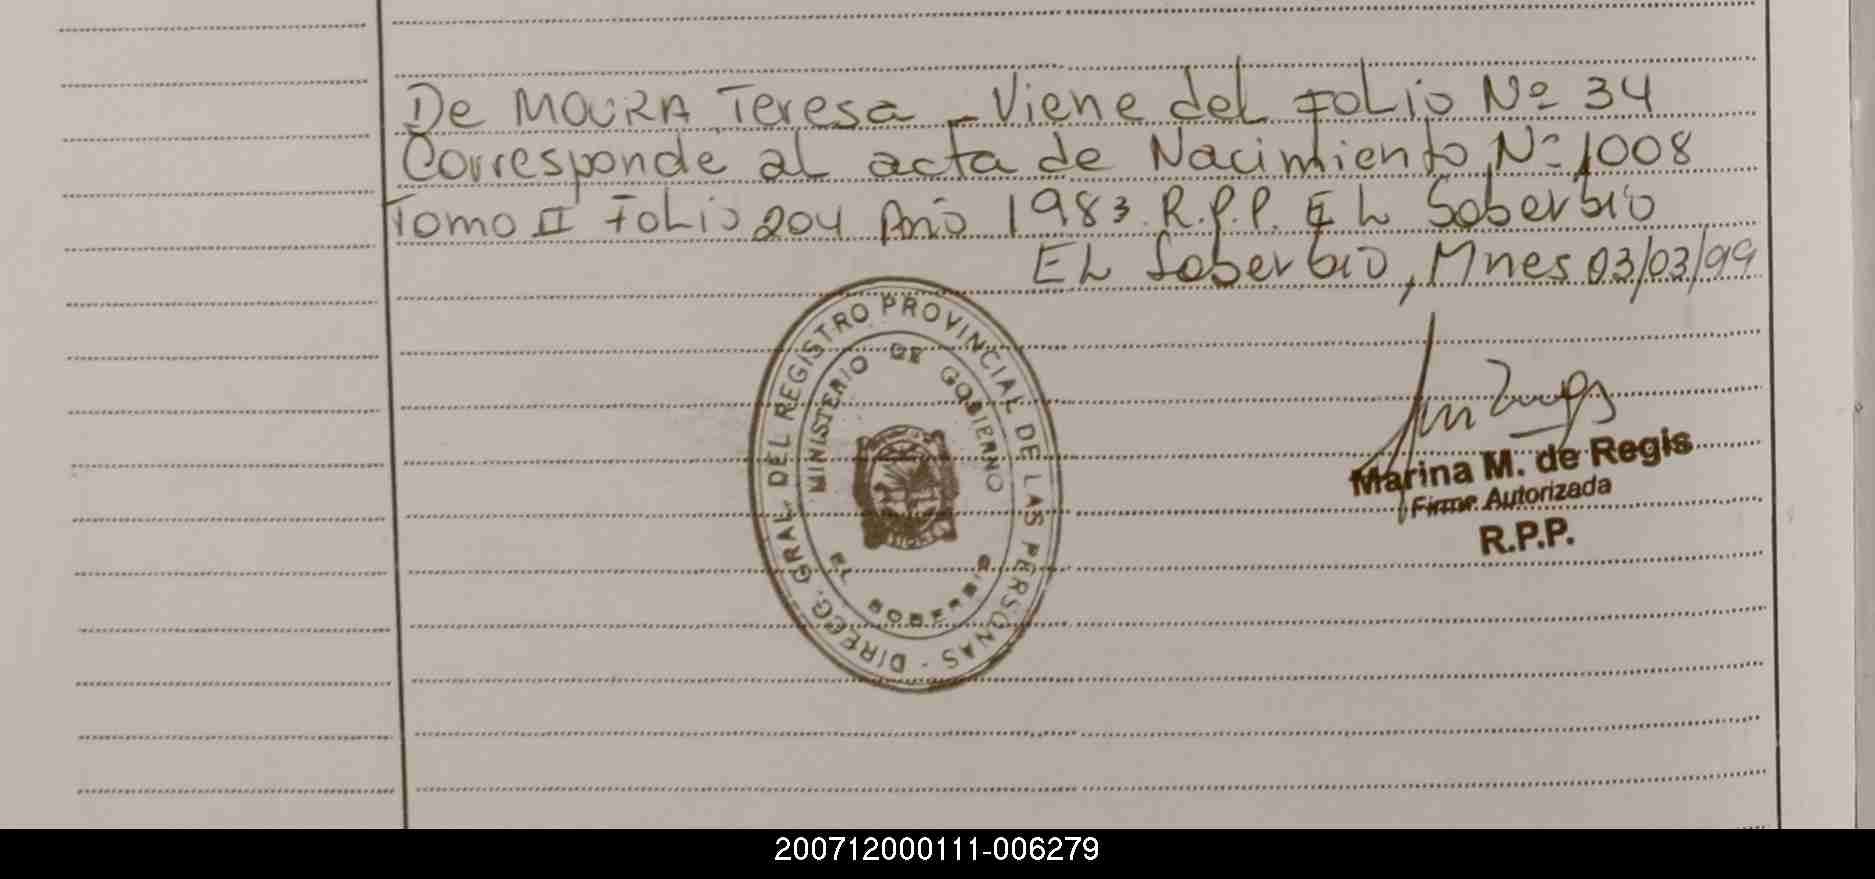 De MOURA Teresa - Viene del FoLio Nº 34
Corresponde al acta de Nacimiento Nº 1008
Tomo II FoLio 204 Año 1983 R.P.P. EL Soberbio
EL Soberbio, Mnes 03/03/99
DIRECC. GRAL. DEL REGISTRO PROVINCIAL DE LAS PERSONAS -
MINISTERIO DE GOBIERNO
EL SOBERBIO
Marina M. de Regis
Firma Autorizada
R.P.P.
200712000111-006279